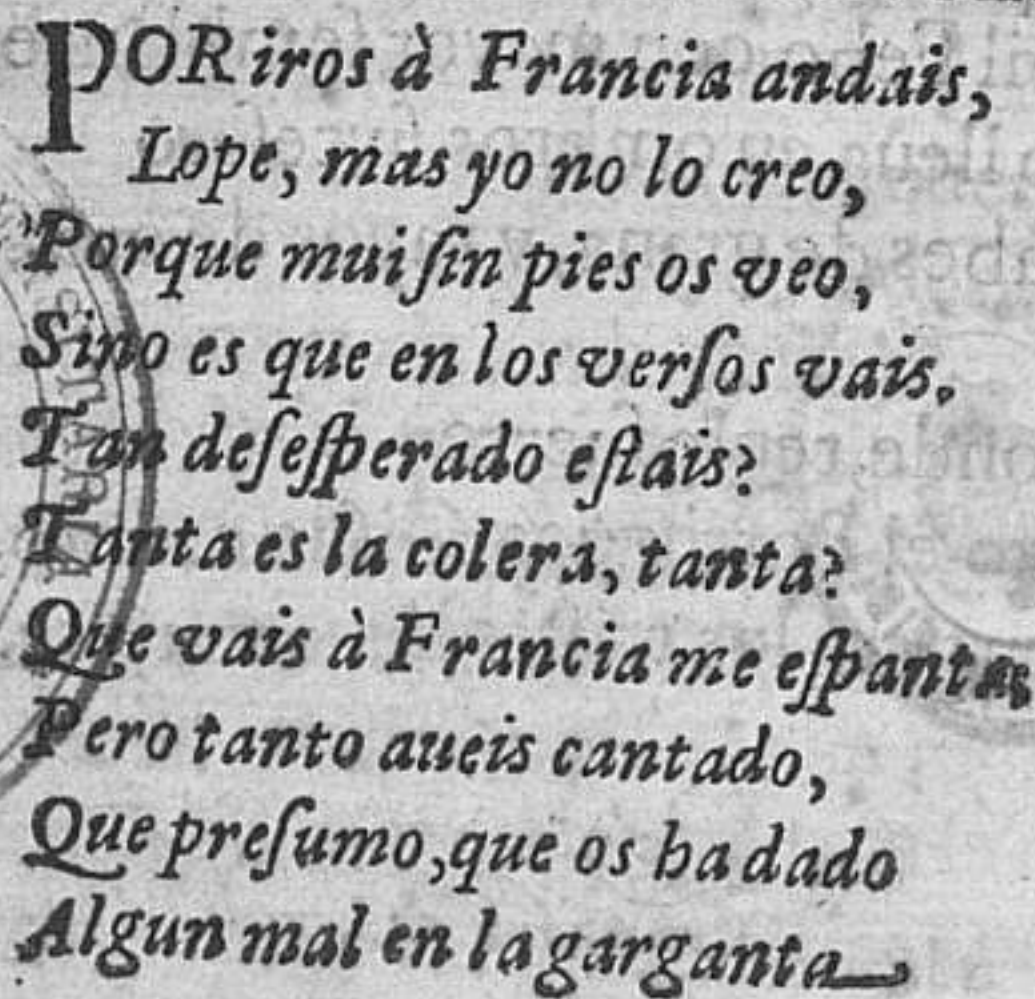 POR iros à Francia andais,
Lope, mas yo no lo creo,
Porque mui ſin pies os veo,
Sino es que en los verſos vais.
Tan deſeſperado eſtais?
Tanta es la colera, tanta?
Que vais à Francia me eſpanta,
Pero tanto aueis cantado,
Que preſumo, que os ha dado
Algun mal en la garganta